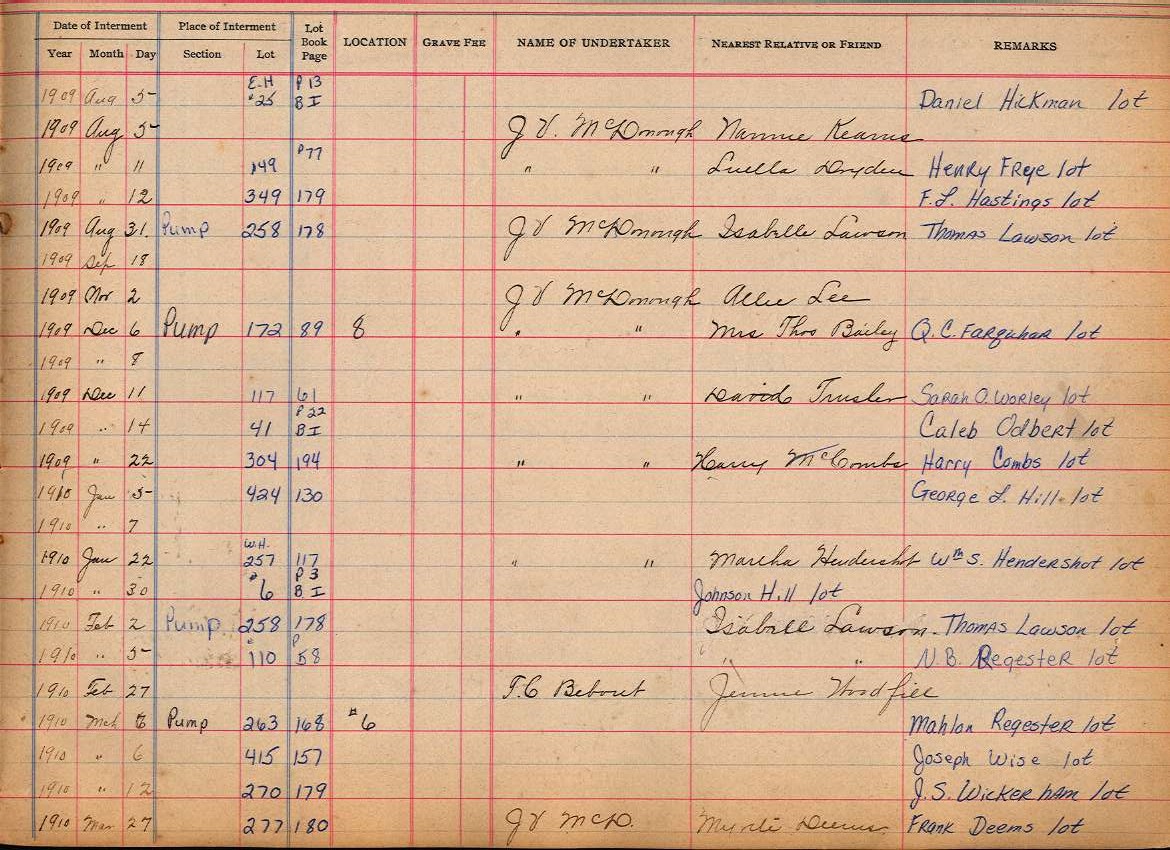 Date of Interment Place of Interment Lot Book Page LOCATION GRAVE FEE NAME OF UNDERTAKER NEAREST RELATIVE OR FRIEND REMARKS
Year Month Day Section Lot
E.H P 13
1909 Aug 5 #25 B I Daniel Hickman lot
1909 Aug 5 J V. McDonough Nannie Kearns
P 77
1909 " 11 149 " " Luella Dryden Henry Frye lot
1909 " 12 349 179 F. L. Hastings lot
1909 Aug 31. Pump 258 178 J V McDonough Isabelle Lawson Thomas Lawson lot
1909 Sep 18
1909 Nov 2 J V McDonough Allie Lee
1909 Dec 6 Pump 172 89 8 " " Mrs Thos Bailey Q. C. Farquhar lot
1909 " 8
1909 Dec 11 117 61 " " David Trusler Sarah O. Worley lot
P 22
1909 " 14 41 B I Caleb Odbert lot
1909 " 22 304 194 " " Harry McCombs Harry Combs lot
1910 Jan 5 424 130 George L. Hill lot
1910 " 7
W.H.
1910 Jan 22 257 117 " " Martha Hendershot Wm S. Hendershot lot
P 3
1910 " 30 6 B I Johnson Hill lot
1910 Feb 2 Pump 258 178 Isabell Lawson Thomas Lawson lot
P
1910 " 5 110 58 " " N. B. Regester lot
1910 Feb 27 T. C Bebout Jennie Woodfill
1910 Mch 6 Pump 263 168 #6 Mahlon Regester lot
1910 " 6 415 157 Joseph Wise lot
1910 " 12 270 179 J. S. Wickerham lot
1910 Mar 27 277 180 J V McD. Myrtle Deems Frank Deems lot